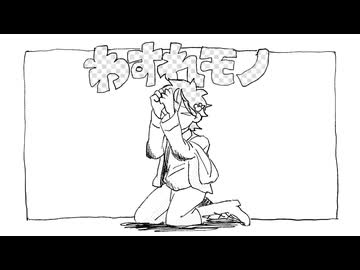 わすれモノ